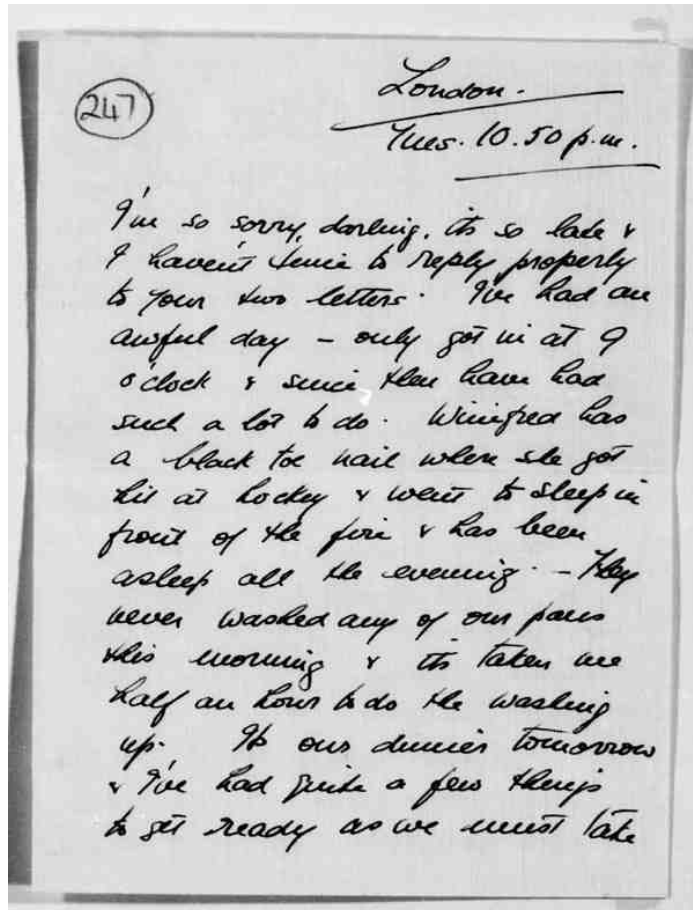 247
London.
Tues. 10.50 p.m.
I'm so sorry, darling, it's so late &
I haven't time to reply properly
to your two letters. I've had an
awful day – only got in at 9
o'clock & since then have had
such a lot to do. Winifred has
a black toe nail where she got
hit at hockey & went to sleep in
front of the fire & has been
asleep all the evening. – They
never washed any of our pans
this morning & it's taken me
half an hour to do the washing
up. It's our dinner tomorrow
& I've had quite a few things
to get ready as we must take